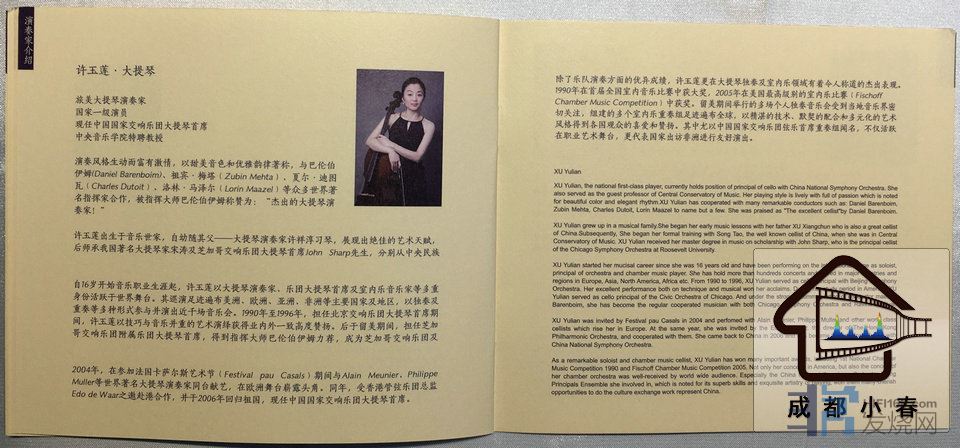 演奏家介绍
许玉莲·大提琴
旅美大提琴演奏家
国家一级演员
现任中国国家交响乐团大提琴首席
中央音乐学院特聘教授
演奏风格生动而富有激情，以甜美音色和优雅韵律著称，与巴伦伯
伊姆(Daniel Barenboim)、祖宾·梅塔（Zubin Mehta）、夏尔·迪图
瓦（Charles Dutoit）、洛林·马泽尔（Lorin Maazel）等众多世界著
名指挥家合作，被指挥大师巴伦伯伊姆称赞为：“杰出的大提琴演
奏家！”
许玉莲出生于音乐世家，自幼随其父——大提琴演奏家许祥淳习琴，展现出绝佳的艺术天赋，
后师承我国著名大提琴家宋涛及芝加哥交响乐团大提琴首席John Sharp先生，分别从中央民族
自16岁开始音乐职业生涯起，许玉莲以大提琴演奏家、乐团大提琴首席及室内乐音乐家等多重
身份活跃于世界舞台。其巡演足迹遍布美洲、欧洲、亚洲、非洲等主要国家及地区，以独奏及
重奏等多种形式参与并演出近千场音乐会。1990年至1996年，担任北京交响乐团大提琴首席期
间，许玉莲以技巧与音乐并重的艺术演绎获得业内外一致高度赞扬。后于留美期间，担任芝加
哥交响乐团附属乐团大提琴首席，得到指挥大师巴伦伯伊姆力荐，成为芝加哥交响乐团及
2004年，在参加法国卡萨尔斯艺术节（Festival pau Casals）期间与Alain Meunier、Philippe
Muller等世界著名大提琴演奏家同台献艺，在欧洲舞台崭露头角。同年，受香港管弦乐团总监
Edo de Waar之邀赴港合作，并于2006年回归祖国，现任中国国家交响乐团大提琴首席。
除了乐队演奏方面的优异成绩，许玉莲更在大提琴独奏及室内乐领域有着令人称道的杰出表现。
1990年在首届全国室内音乐比赛中获大奖，2005年在美国最高级别的室内乐比赛（Fischoff
Chamber Music Competition）中获奖。留美期间举行的多场个人独奏音乐会受到当地音乐界密
切关注，组建的多个室内乐重奏组足迹遍布全球，以精湛的技术、默契的配合和多元化的艺术
风格得到各国观众的喜爱和赞扬。其中尤以中国国家交响乐团弦乐首席重奏组闻名，不仅活跃
在职业艺术舞台，更代表国家出访非洲进行友好演出。
XU Yulian
XU Yulian, the national first-class player, currently holds position of principal of cello with China National Symphony Orchestra. She
also served as the guest professor of Central Conservatory of Music. Her playing style is lively with full of passion which is noted
for beautiful color and elegant rhythm.XU Yulian has cooperated with many remarkable conductors such as: Daniel Barenboim,
Zubin Mehta, Charles Dutoit, Lorin Maazel to name but a few. She was praised as "The excellent cellist"by Daniel Barenboim.
XU Yulian grew up in a musical family.She began her early music lessons with her father XU Xiangchun who is also a great cellist
of China.Subsequently, She began her formal training with Song Tao, the well known cellist of China, when she was in Central
Conservatory of Music. XU Yulian received her master degree in music on scholarship with John Sharp, who is the principal cellist
of the Chicago Symphony Orchestra at Roosevelt University.
XU Yulian started her mucisal career since she was 16 years old and have been performing on the as soloist,
principal of orchestra and chamber music player. She has hold more than hundreds concerts and in major and
regions of Europe, Asia, North America, Africa etc. From 1990 to 1996, XU Yulian served as principal with Beijing
Orchestra. Her excellent performance both on technique and musical won her acclaims. period in
Yulian served as cello principal of the Civic Orchestra of Chicago. And under the strong
Barenboim, she has become the regular cooperated musician with both Chicago
XU Yulian was invited by Festival pau Casals in 2004 and perfomed with Alain Philippe Muller and other world
cellists which rise her in Europe. At the same year, she was invited by Kong
Philharmonic Orchestra, and cooperated with them. She came back to China in 2006
China National Symphony Orchestra.
As a remarkable soloist and chamber music cellist, XU Yulian won many important National Chamber
Music Competition 1990 and Fischoff Chamber Music Competition 2005. Not only her concert in America, but also the
her chamber orchestra was well-received by world wide audience. Especially the China
Principals Ensemble she involved in, which is noted for its superb skills and exquisite
opportunities to do the culture exchange work represent China.
成都小春
发烧网